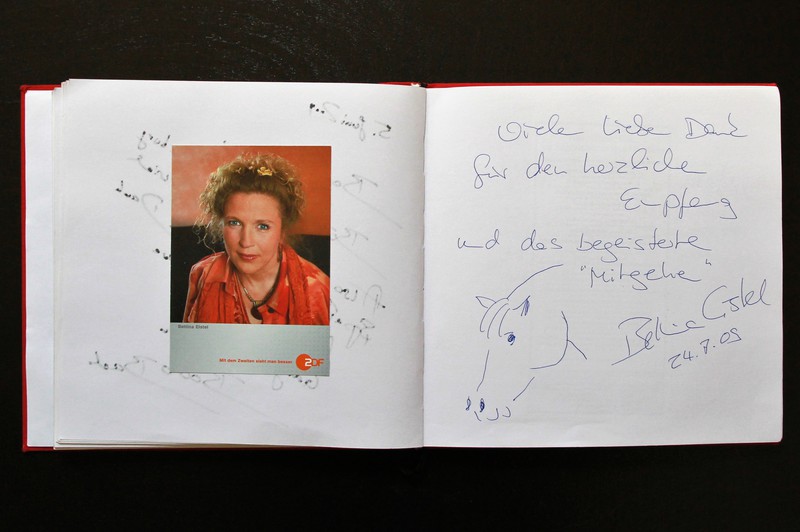 5. Juni
viel
Dank
Bettina Eistel
Mit dem Zweiten sieht man besser
ZDF
Vielen lieben Dank
für den herzlichen
Empfang
und das begeisterte
"Mitgehen"
Bettina Eistel
24.7.09